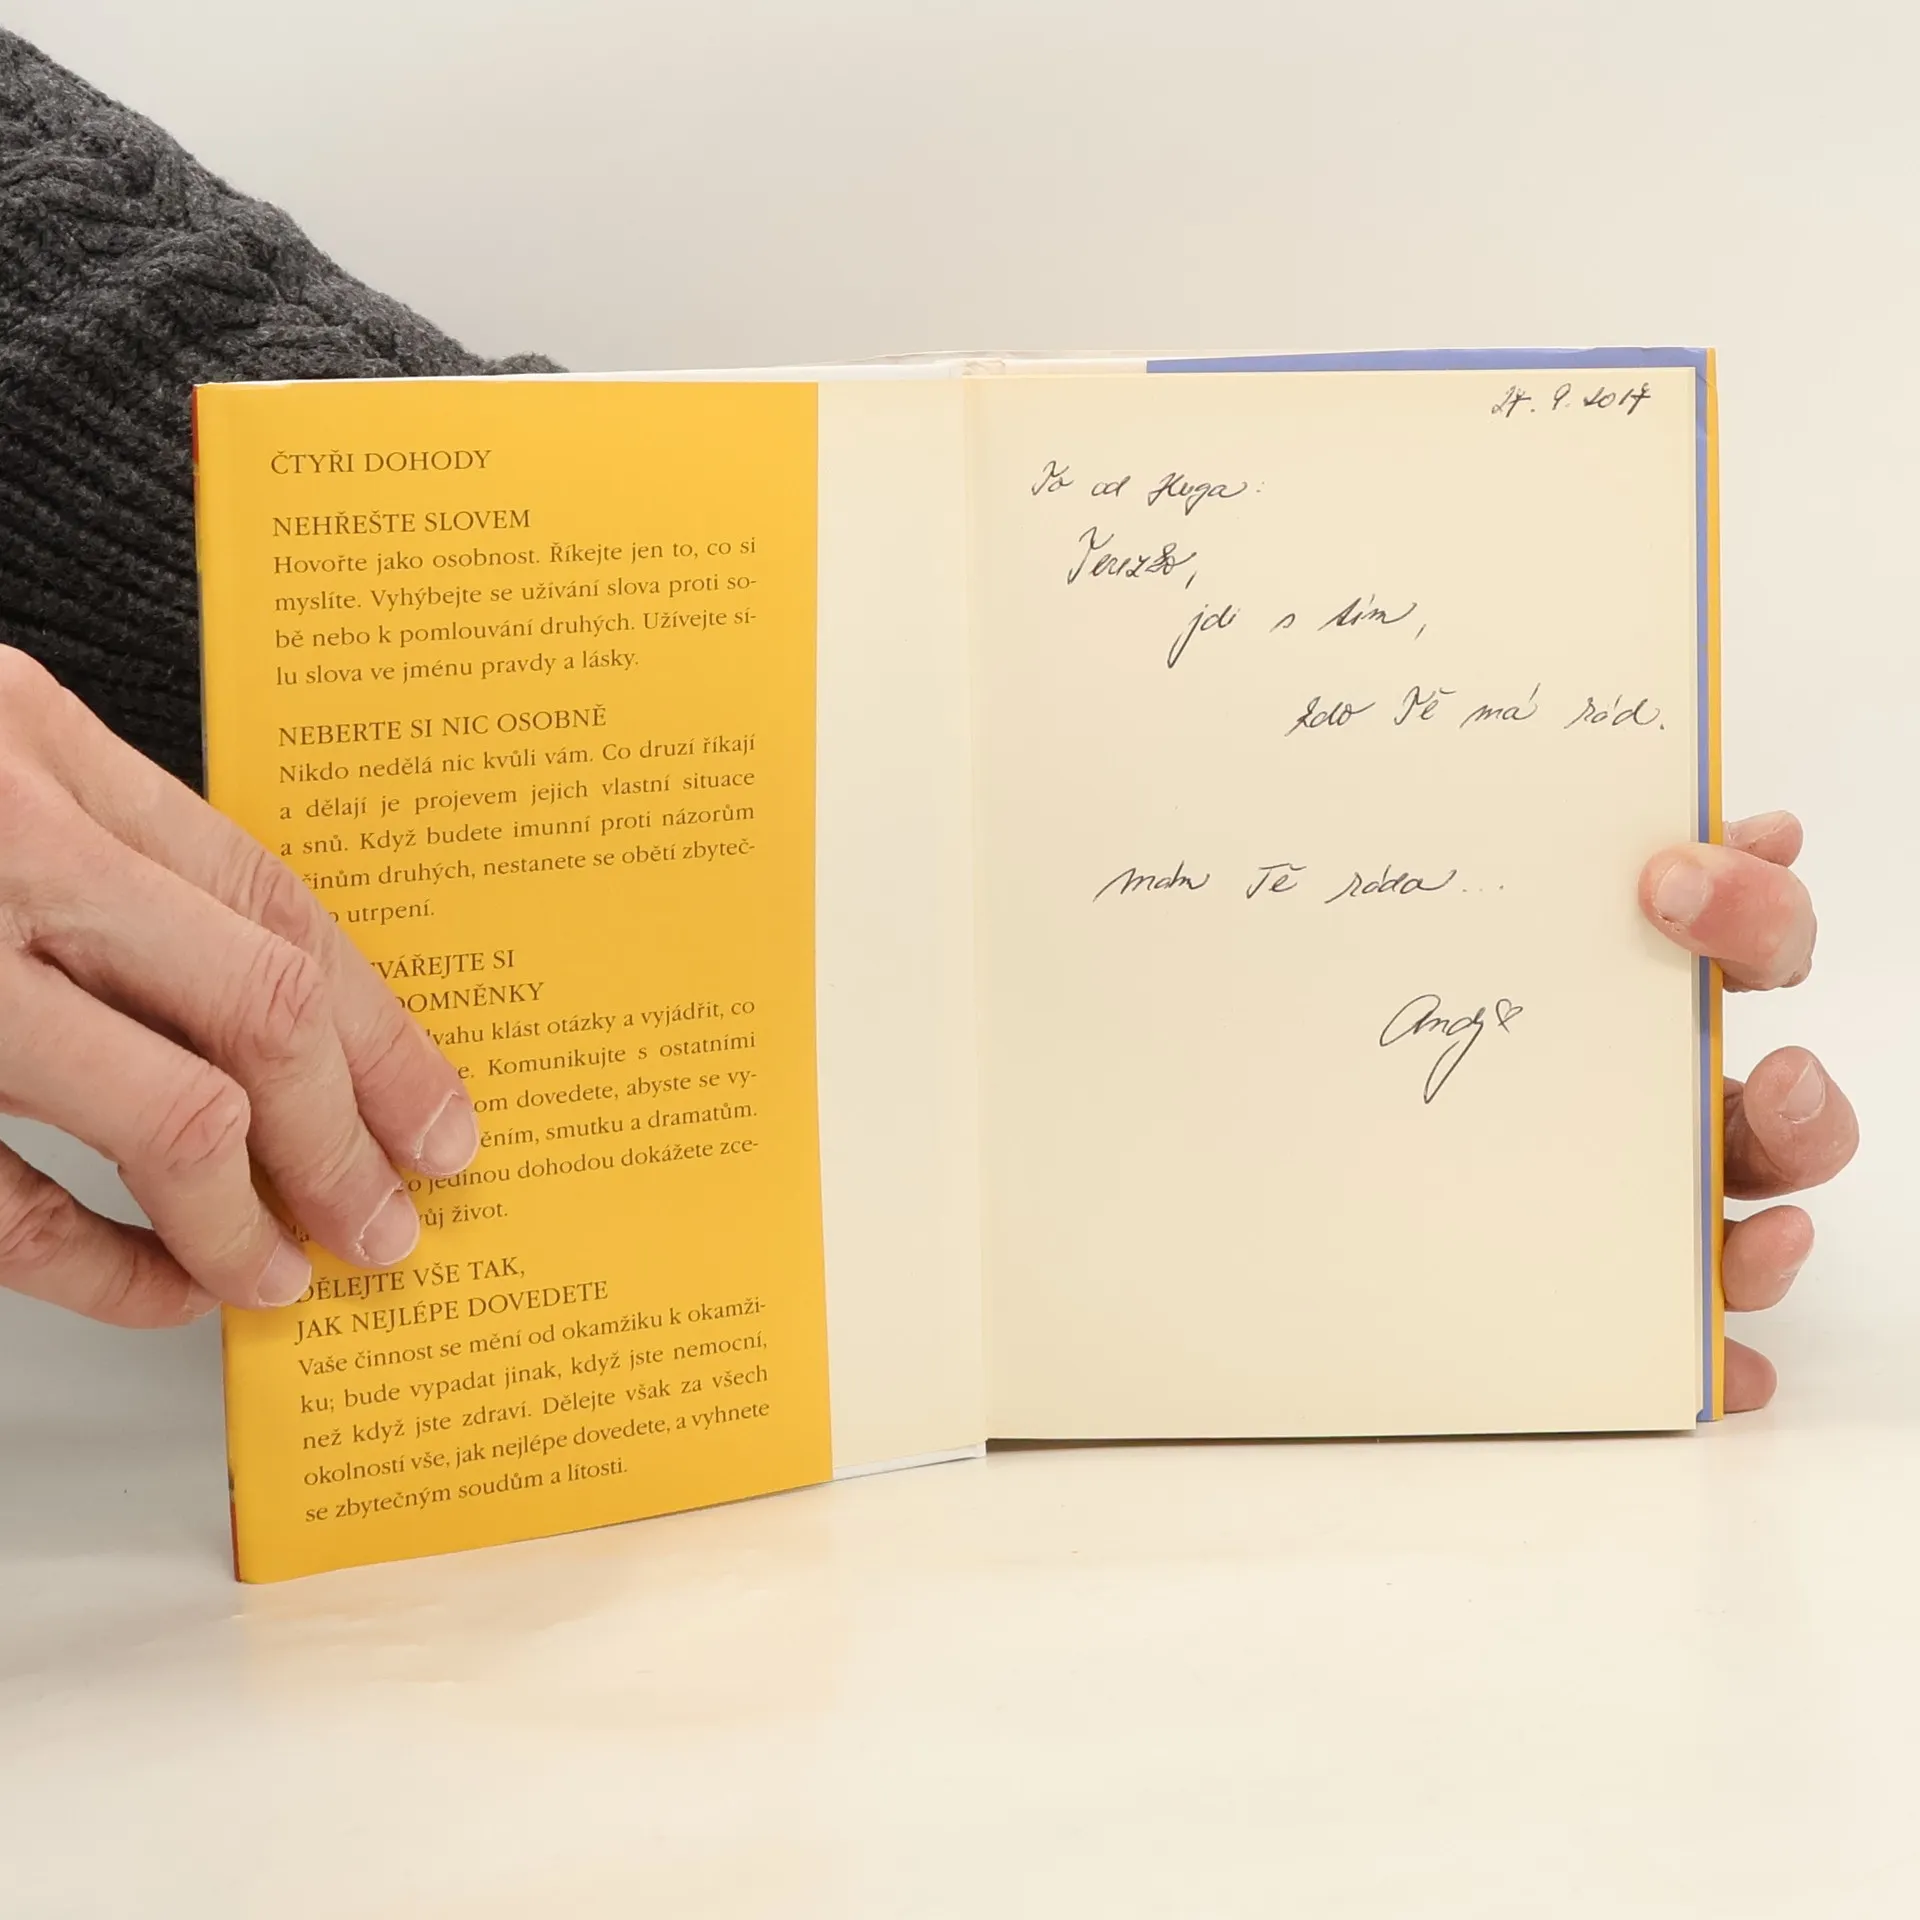 ČTYŘI DOHODY
NEHŘEŠTE SLOVEM
Hovořte jako osobnost. Říkejte jen to, co si
myslíte. Vyhýbejte se užívání slova proti so-
bě nebo k pomlouvání druhých. Užívejte sí-
lu slova ve jménu pravdy a lásky.
NEBERTE SI NIC OSOBNĚ
Nikdo nedělá nic kvůli vám. Co druzí říkají
a dělají je projevem jejich vlastní situace
a snů. Když budete imunní proti názorům
činům druhých, nestanete se obětí zbyteč-
utrpení.
VÁŘEJTE SI
OMNĚNKY
vahu klást otázky a vyjádřit, co
e. Komunikujte s ostatními
om dovedete, abyste se vy-
ěním, smutku a dramatům.
o jedinou dohodou dokážete zce-
ůj život.
DĚLEJTE VŠE TAK,
JAK NEJLÉPE DOVEDETE
Vaše činnost se mění od okamžiku k okamži-
ku; bude vypadat jinak, když jste nemocní,
než když jste zdraví. Dělejte však za všech
okolností vše, jak nejlépe dovedete, a vyhnete
se zbytečným soudům a lítosti.
27. 9. 2017
To od Huga:
Terezko,
jdi s tím,
kdo Tě má rád.
mám Tě ráda...
Andy